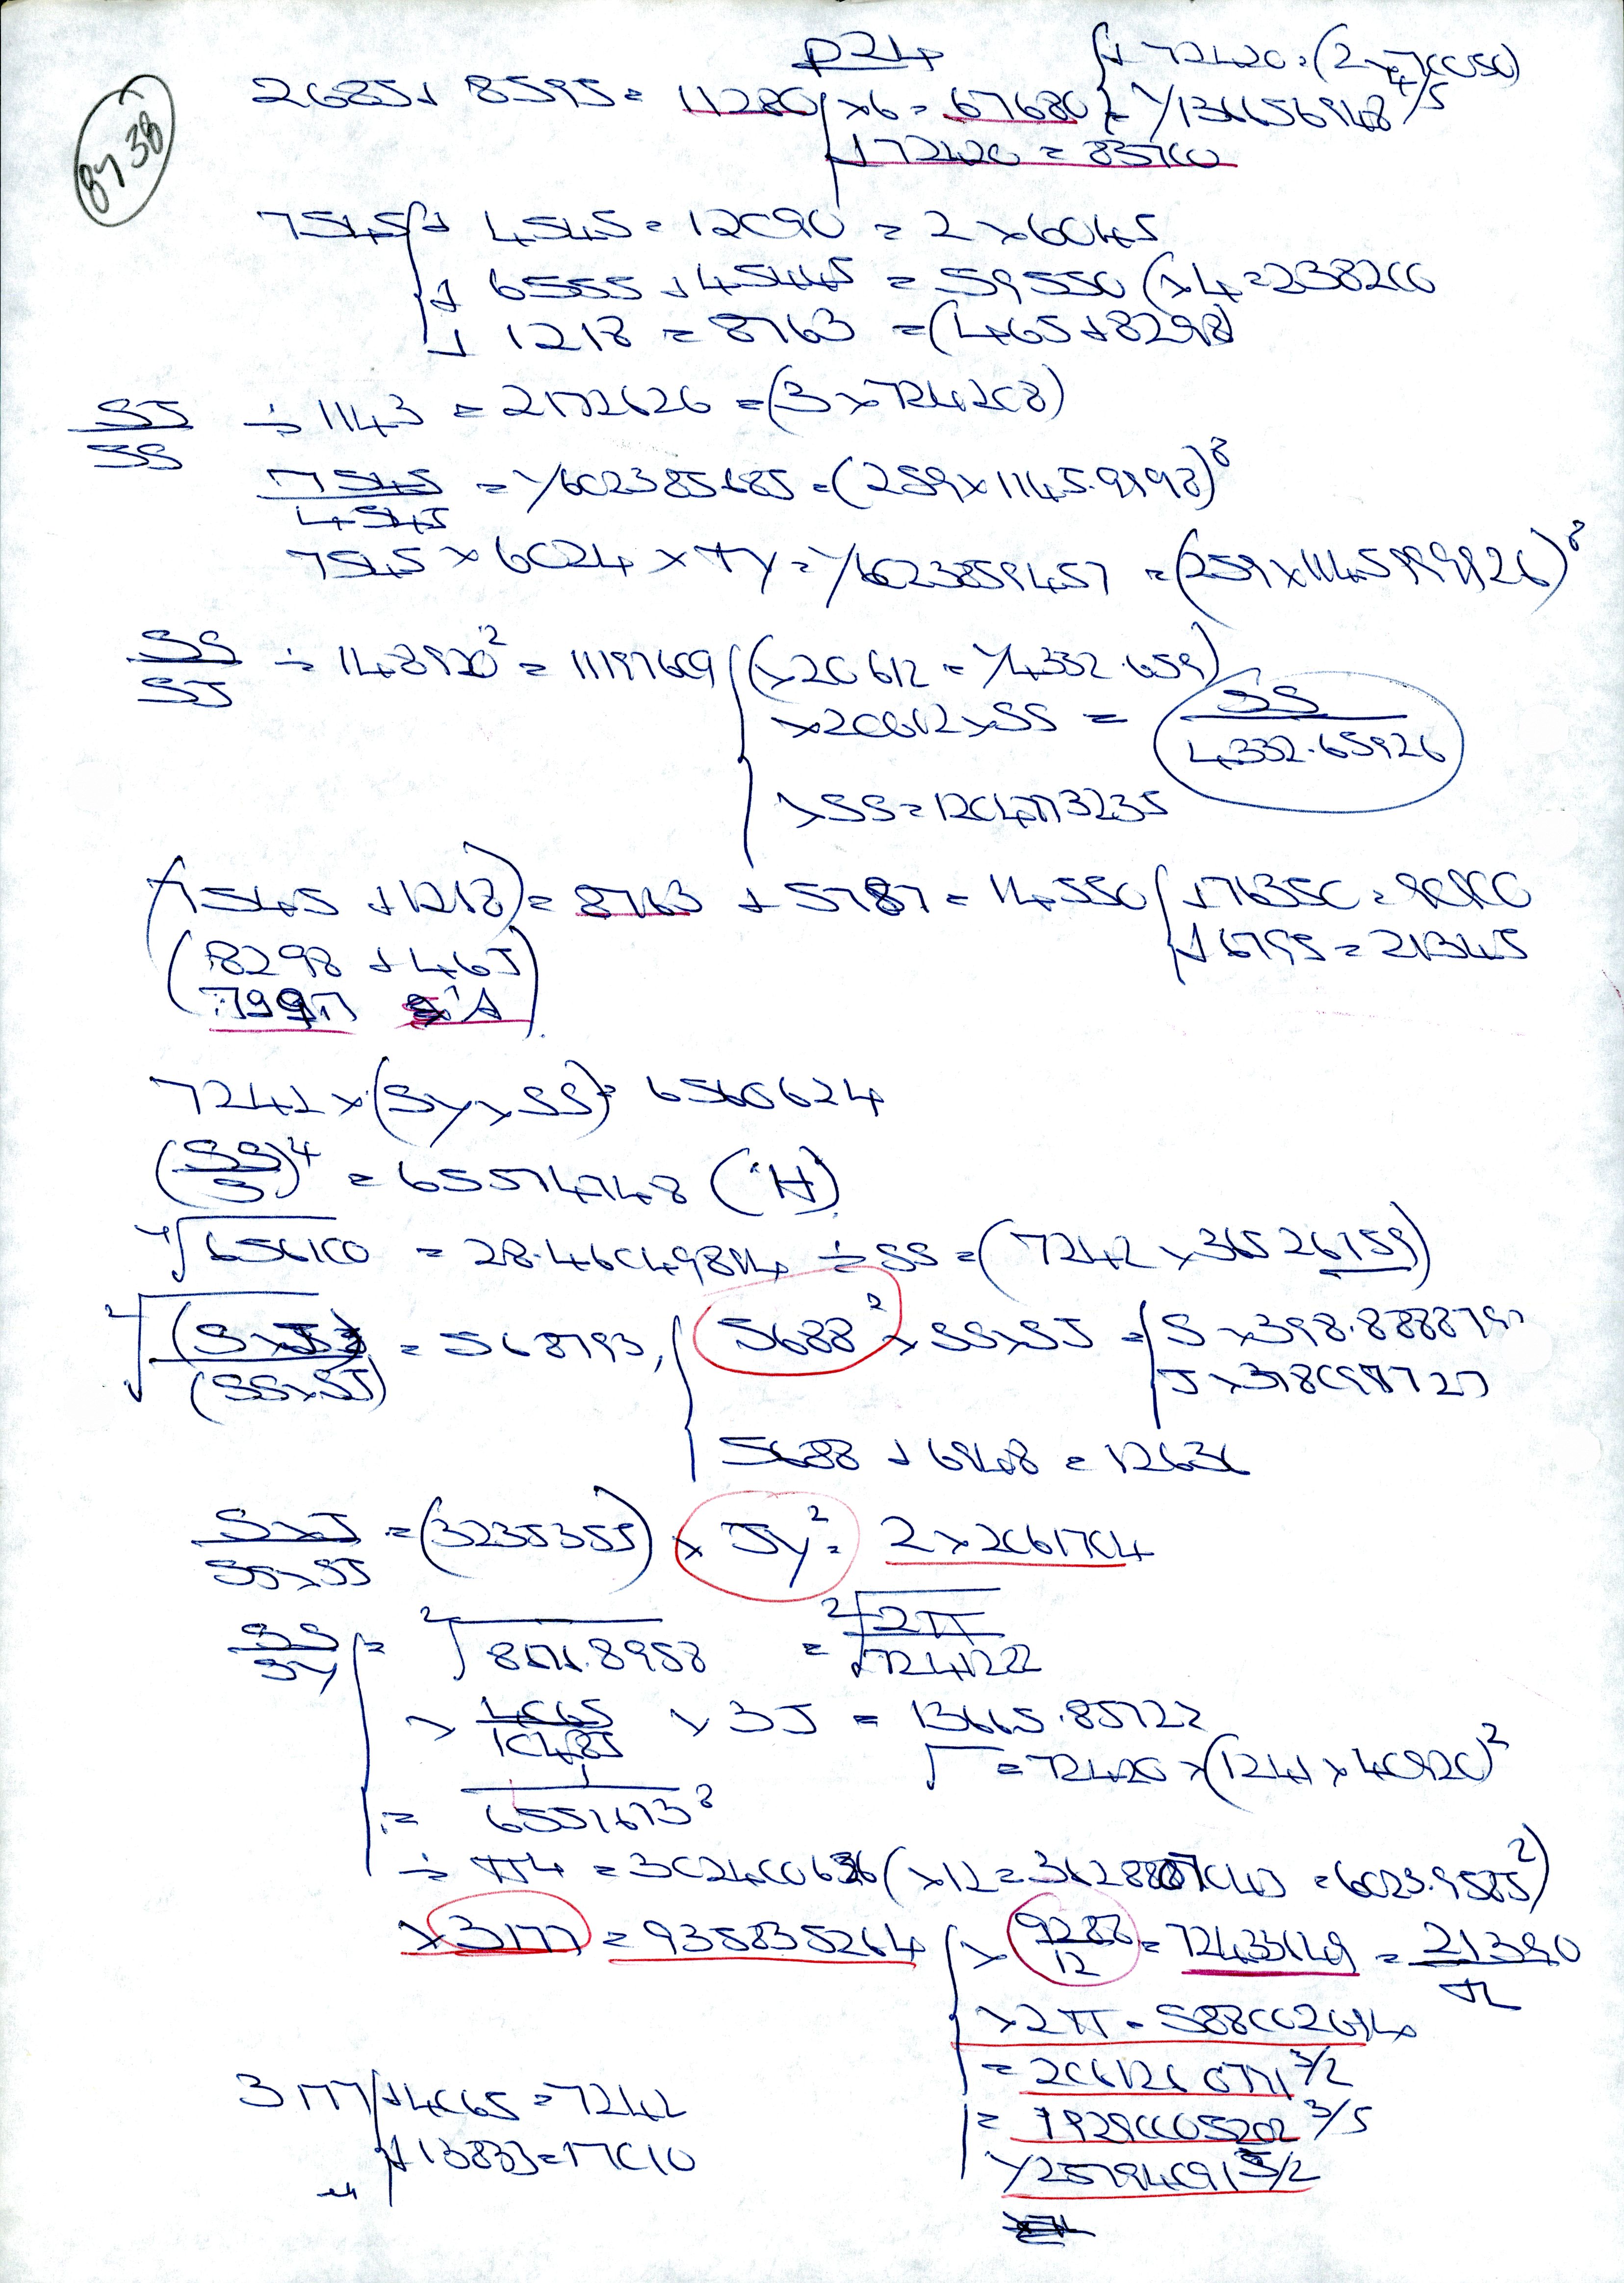 P24
8738
2685 + 8595 = 11280 { × 6 = 67680 }
+ 72420 = 83700
+ 72420 = (2 × 70050)
7545 { + 4545 = 12090 = 2 × 6045
+ 6555 + 45445 = 59550 (× 4 = 238200
+ 1218 = 8763 = (465 + 8298)
SJ/SS ÷ 1143 = 2172626 = (3 × 724208)
7545/4545 = 1/602385685 = (259 × 1145.9998)⁸
7545 × 6024 × TY = 1/6023859457 = (259 × 1145999926)⁸
SS/SJ ÷ 148920² = 11197609 { (× 20612 = 1/4332.659)
× 20612 × SS = SS/4332.65926
× SS = 1204773235
(7545 + 1218) = 8763 + 5787 = 14550 { + 76350 = 90900
(8298 + 465) + 6795 = 21345
7242 × (SY × SS) = 6560624
(SS/3)⁴ = 65574748 ('H)
⁴√656100 = 28.46049894 ÷ SS = (7242 × 36526159)
²√(S×J)/(SS×SJ) = 568793, { 5688² × SS × SJ = { S × 398.8888791
J × 318098727
5688 + 6948 = 12636
S×J/SS×SJ = (3235355) × JY² = 2 × 2061704
SS/SY { = ²√8171.8958 = ²√2π/724222
× 4065/10485 × 3J = 13665.85722
√ = 72420 × (1241 × 40920)²
= 1/6551673⁸
÷ π4 = 302400636 (× 12 = 3628807043 = 6023.9585²)
× 3177 = 935835264 { × 9288/12 = 72433649 = 21390/π
× 2π = 588002694
= 206126 0771 3/2
= 19290005202 3/5
1/257940915/2
3177 { + 4065 = 7242
+ 13833 = 17010